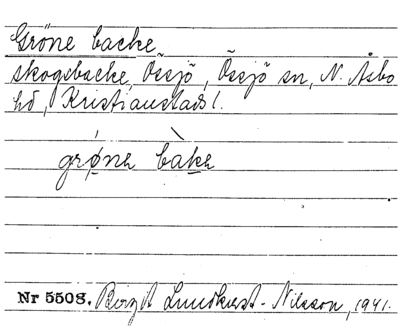 Gröne backe
skogsbacke, Össjö, Össjö sn, N. Åsbo
hd, Kristianstads l.
grø̀nə bàkə
Nr 5508. Birgit Lundkvist-Nilsson, 1941.